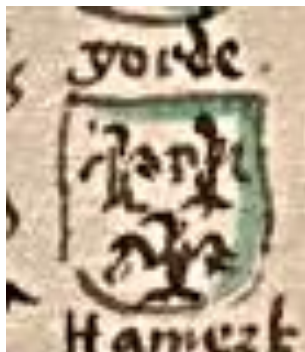 yorde
Hamezk